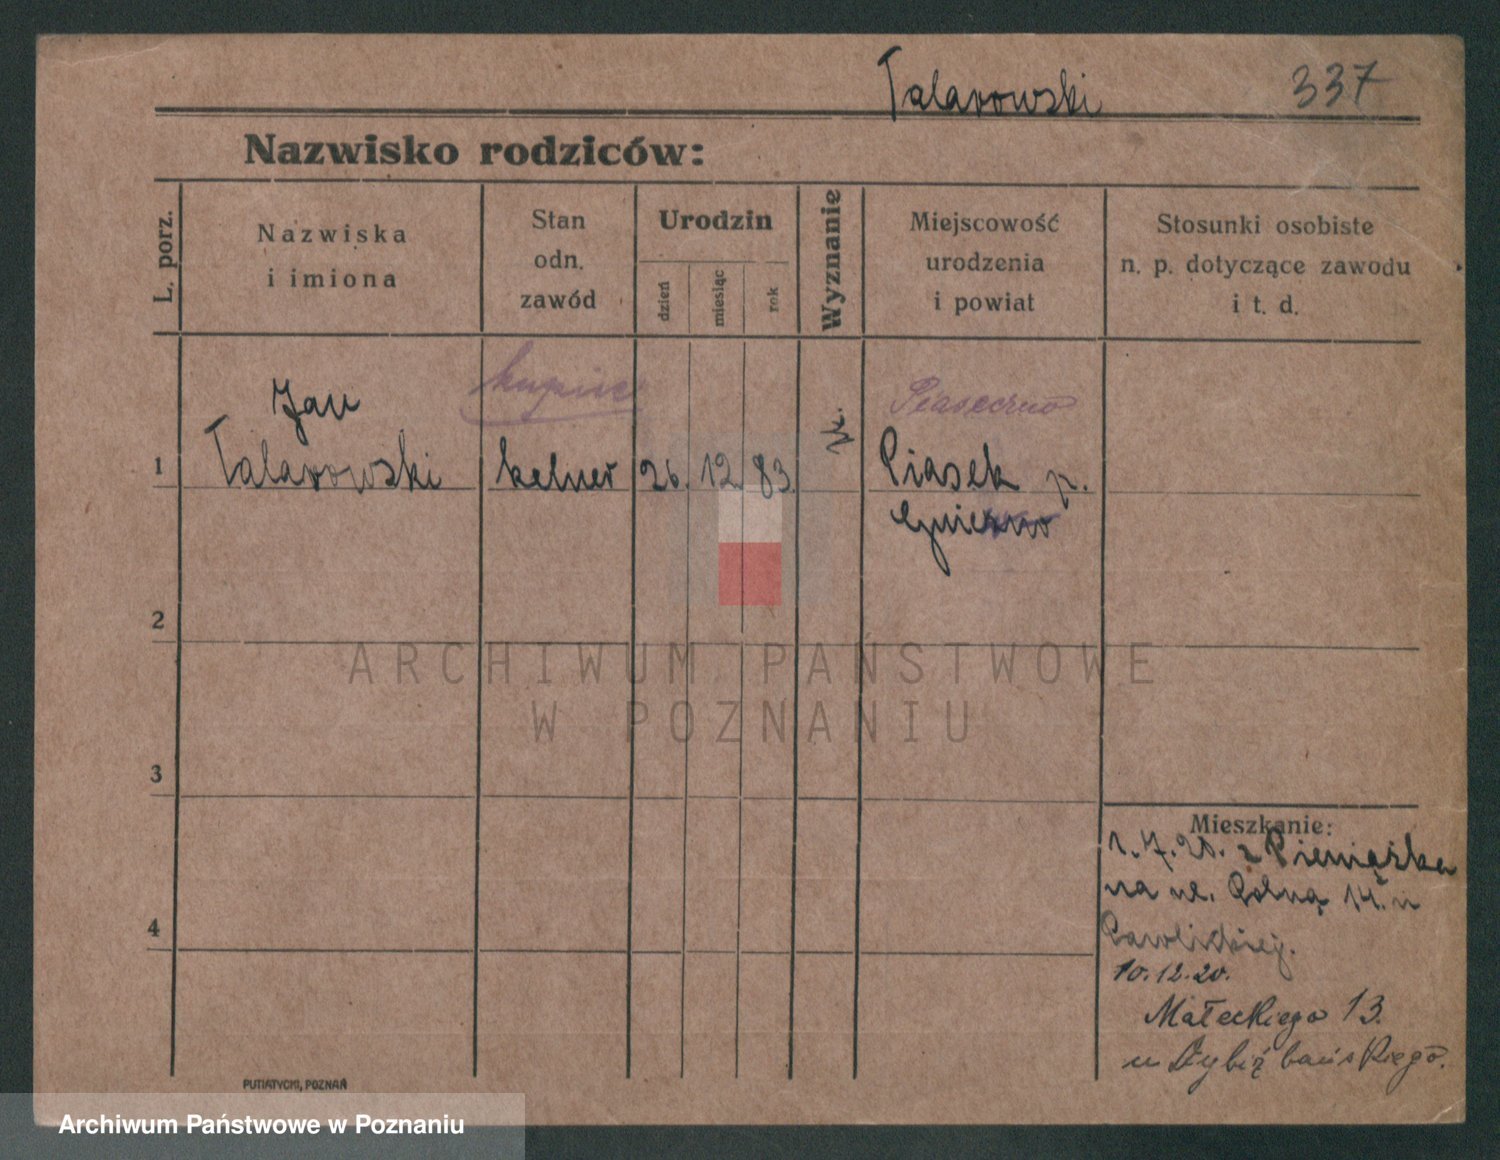 Talarowski 337
Nazwisko rodziców:
L. porz.
Nazwiska
i imiona
Stan
odn.
zawód
Urodzin
dzień
miesiąc
rok
Wyznanie
Miejscowość
urodzenia
i powiat
Stosunki osobiste
n. p. dotyczące zawodu
i t. d.
kupiec
Jan
Piaseczno
1 Talarowski kelner 26. 12. 83. k. Piasek p.
Gniezno
2
ARCHIWUM PAŃSTWOWE
W POZNANIU
3
Mieszkanie:
1.7.20. z Pieniążka
na ul. Polną 14. u
4
10.12.20.
Małeckiego 13.
u
PUTIATYCKI, POZNAŃ
Archiwum Państwowe w Poznaniu